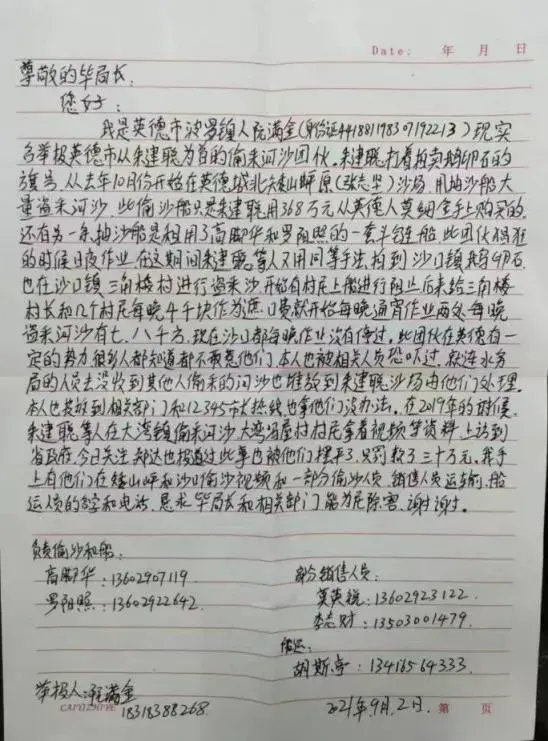 Date: 年 月 日
尊敬的毕局长:
您好:
我是英德市波罗镇人阮满金(身份证441881198307192213)现实
名举报英德市从朱建聪为首的偷采河沙团伙。朱建聪打着拍卖鹅卵石的
旗号,从去年10月份开始在英德城北矮山坪原(张志坚)沙场,用抽沙船大
量盗采河沙,此偷沙船只是朱建聪用368万元从英德人莫细金手上购买的
还有另一条抽沙船是租用了高脚华和罗阳照的一套斗链船,此团伙猖狂
的时候日夜作业,在这期间朱建聪等人不用同等手法,拍到沙口镇鹅卵石
也在沙口镇三角楼村进行盗采沙,开始有村民上船进行阻止后来给三角楼
村长和几个村民每晚4千块作为遮口费就开始每晚通宵作业两处每晚
盗采河沙有七、八千方,现在沙口都每晚作业没有停过。此团伙在英德有一
定的势力很多人都知道都不敢惹他们,本人也被相关人员恐吓过,就连水务
局的人员去没收到其他人偷采的河沙也堆放到朱建聪沙场由他们处理
本人也投诉到相关部门和12345市长热线也拿他们没办法。在2019年的时候
朱建聪等人在大湾镇偷采河沙,大湾冯屋村村民拿着视频等资料上访到
省政府,今日关注 郑达也报道过此事也被他们摆平了,只罚款了三十万元,我手
上有他们在矮山坪和沙口偷沙视频和一部分偷沙人员,销售人员运输,船
运人员的名字和电话,恳求毕局长和相关部门能为民除害,谢谢。
负责偷沙和船:
高脚华:13602907119
罗阳照:13602922642.
部分销售人员:
莫英锐:13602923122.
李志财:13503001479.
船运:
胡斯亭:13416564333.
举报人:阮满金
CAIYIZHIYE 18318388268.
2021年.9月.2日. 第 页